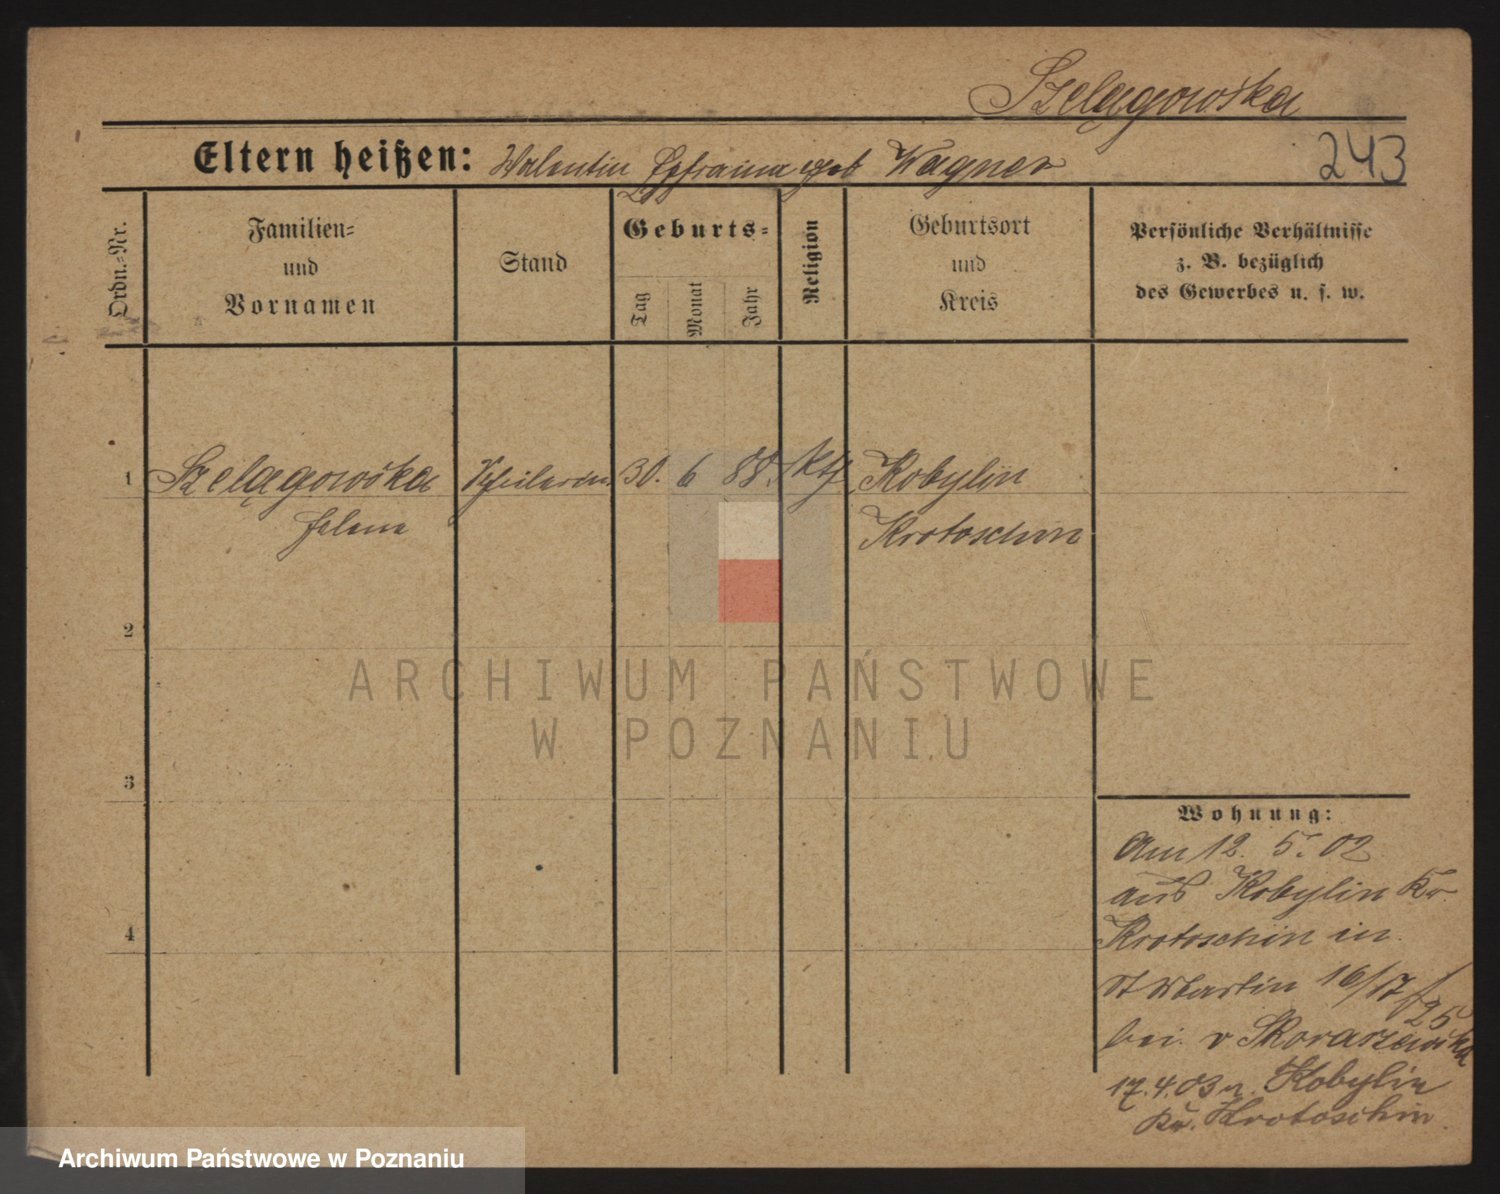 Szelągowska
Eltern heißen: Valentin Effraima geb Wagner
243
Ordn.-Nr.
Familien-
und
Vornamen
Stand
Geburts-
Tag
Monat
Jahr
Religion
Geburtsort
und
Kreis
Persönliche Verhältnisse
z. B. bezüglich
des Gewerbes u. s. w.
1 Szelągowska Schülerin 30. 6 88. kth Kobylin
Helene Krotoschin
2
3
4
ARCHIWUM PAŃSTWOWE
W POZNANIU
Wohnung:
Am 12. 5. 02
aus Kobylin Kr.
Krotoschin in
St Martin 16/17
25
bei v Skorazewska
17.4.03 n. Kobylin
Kr. Krotoschin.
Archiwum Państwowe w Poznaniu